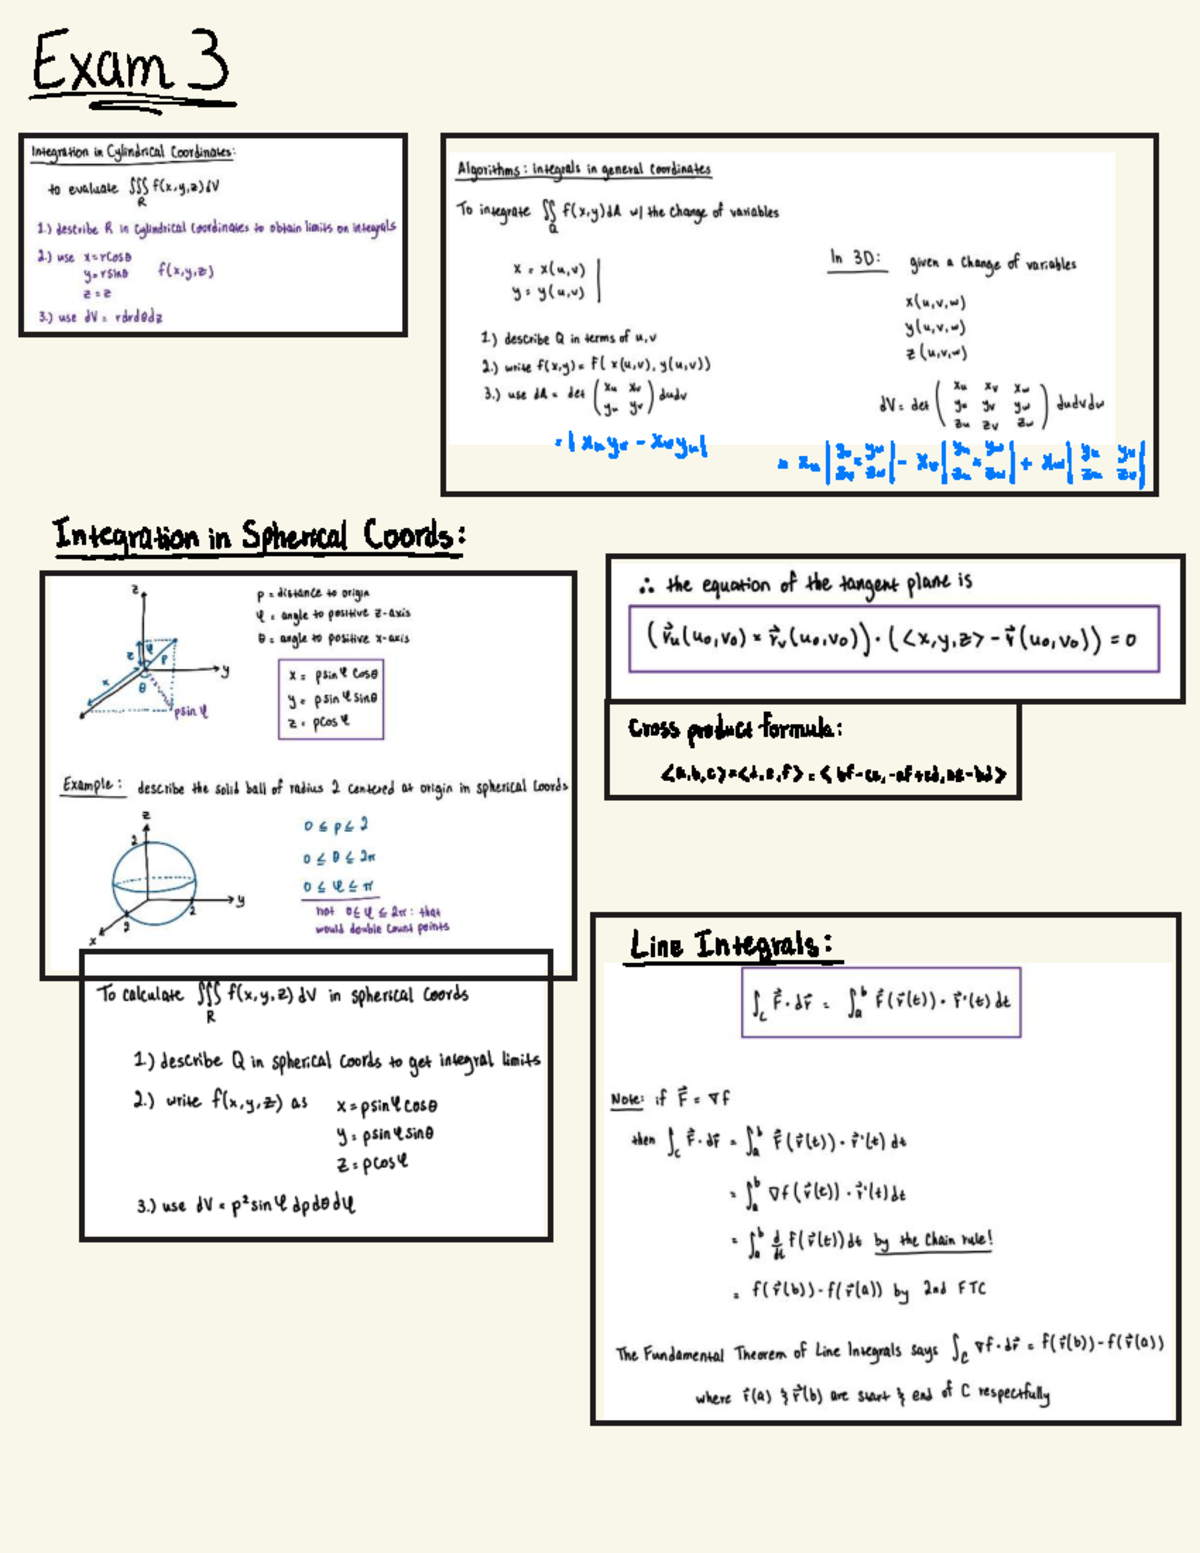 Exam 3
Integration in Cylindrical Coordinates:
to evaluate ∭_R f(x,y,z)dV
1.) describe R in cylindrical coordinates to obtain limits on integrals
2.) use x=rcosθ
y=rsinθ f(x,y,z)
z=z
3.) use dV= rdrdθdz
Algorithms: integrals in general coordinates
To integrate ∬_Q f(x,y)dA w/ the change of variables
x = x(u,v)
y = y(u,v)
1.) describe Q in terms of u,v
2.) write f(x,y)= F( x(u,v), y(u,v))
3.) use dA = det (x_u x_v
y_u y_v) dudv
= |x_u y_v - x_v y_u|
In 3D: given a change of variables
x(u,v,w)
y(u,v,w)
z(u,v,w)
dV= det (x_u x_v x_w
y_u y_v y_w
z_u z_v z_w) dudvdw
Integration in Spherical Coords:
z
y
x
z φ ρ
θ
ρsinφ
ρ = distance to origin
φ = angle to positive z-axis
θ = angle to positive x-axis
x = ρsinφcosθ
y = ρsinφsinθ
z = ρcosφ
Example: describe the solid ball of radius 2 centered at origin in spherical coords
z
2
y
2
x
2
0 ≤ ρ ≤ 2
0 ≤ θ ≤ 2π
0 ≤ φ ≤ π
not 0 ≤ φ ≤ 2π: that
would double count points
To calculate ∭_R f(x,y,z)dV in spherical coords
1.) describe Q in spherical coords to get integral limits
2.) write f(x,y,z) as x=ρsinφcosθ
y=ρsinφsinθ
z=ρcosφ
3.) use dV = ρ²sinφdρdθdφ
∴ the equation of the tangent plane is
(r⃗_u(u₀,v₀) × r⃗_v(u₀,v₀))·(<x,y,z> - r⃗(u₀,v₀)) = 0
Cross product formula:
Line Integrals:
∫_C F⃗·dr⃗ = ∫_a^b F⃗(r⃗(t))·r⃗'(t)dt
Note: if F⃗ = ∇f
then ∫_C F⃗·dr⃗ = ∫_a^b F⃗(r⃗(t))·r⃗'(t)dt
= ∫_a^b ∇f(r⃗(t))·r⃗'(t)dt
= ∫_a^b d/dt f(r⃗(t))dt by the chain rule!
= f(r⃗(b))-f(r⃗(a)) by 2nd FTC
The Fundamental Theorem of Line Integrals says ∫_C ∇f·dr⃗ = f(r⃗(b))-f(r⃗(a))
where r⃗(a) & r⃗(b) are start & end of C respectfully